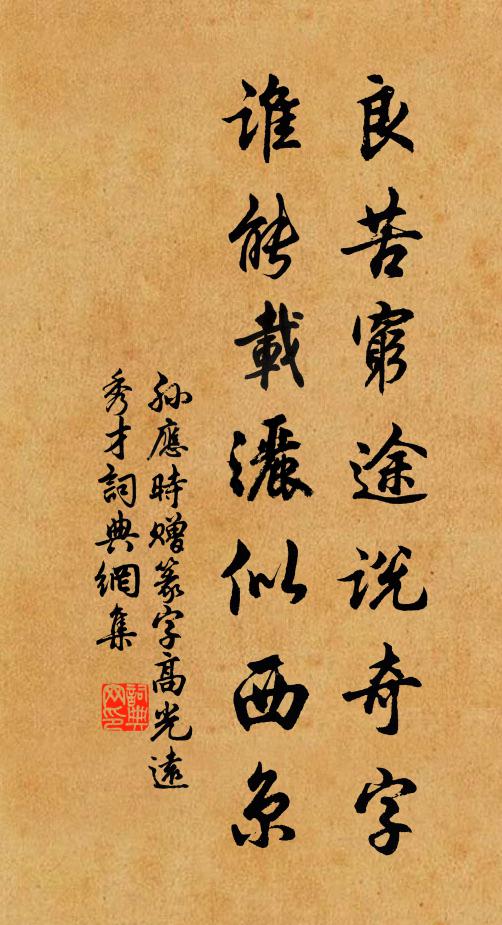 良苦窮途說奇字
誰能載灑似西京
孫應時赠篆字高光遠
秀才詞典網集
詞典
网印